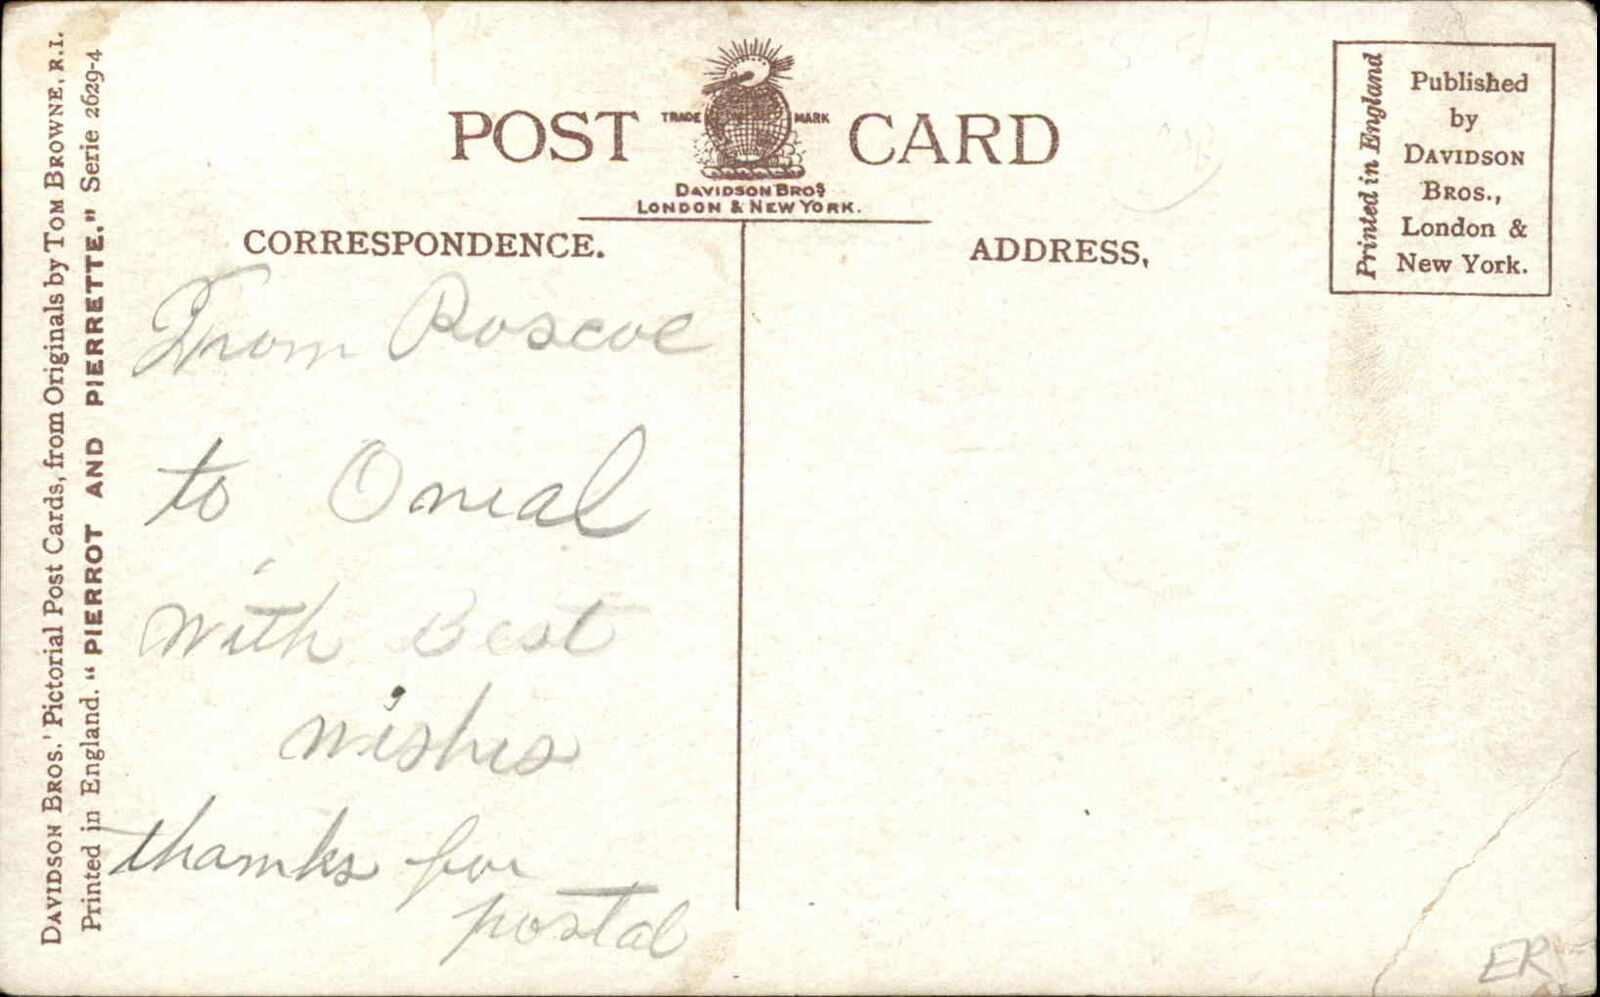 DAVIDSON BROS.' Pictorial Post Cards, from Originals by TOM BROWNE, R.I.
Printed in England. "PIERROT AND PIERRETTE." Serie 2629-4
POST CARD
TRADE MARK
DAVIDSON BROS
LONDON & NEW YORK.
CORRESPONDENCE.
ADDRESS,
Printed in England
Published
by
DAVIDSON
BROS.,
London &
New York.
From Roscoe
to Oneal
with Best
wishes
thanks for
postal
ER